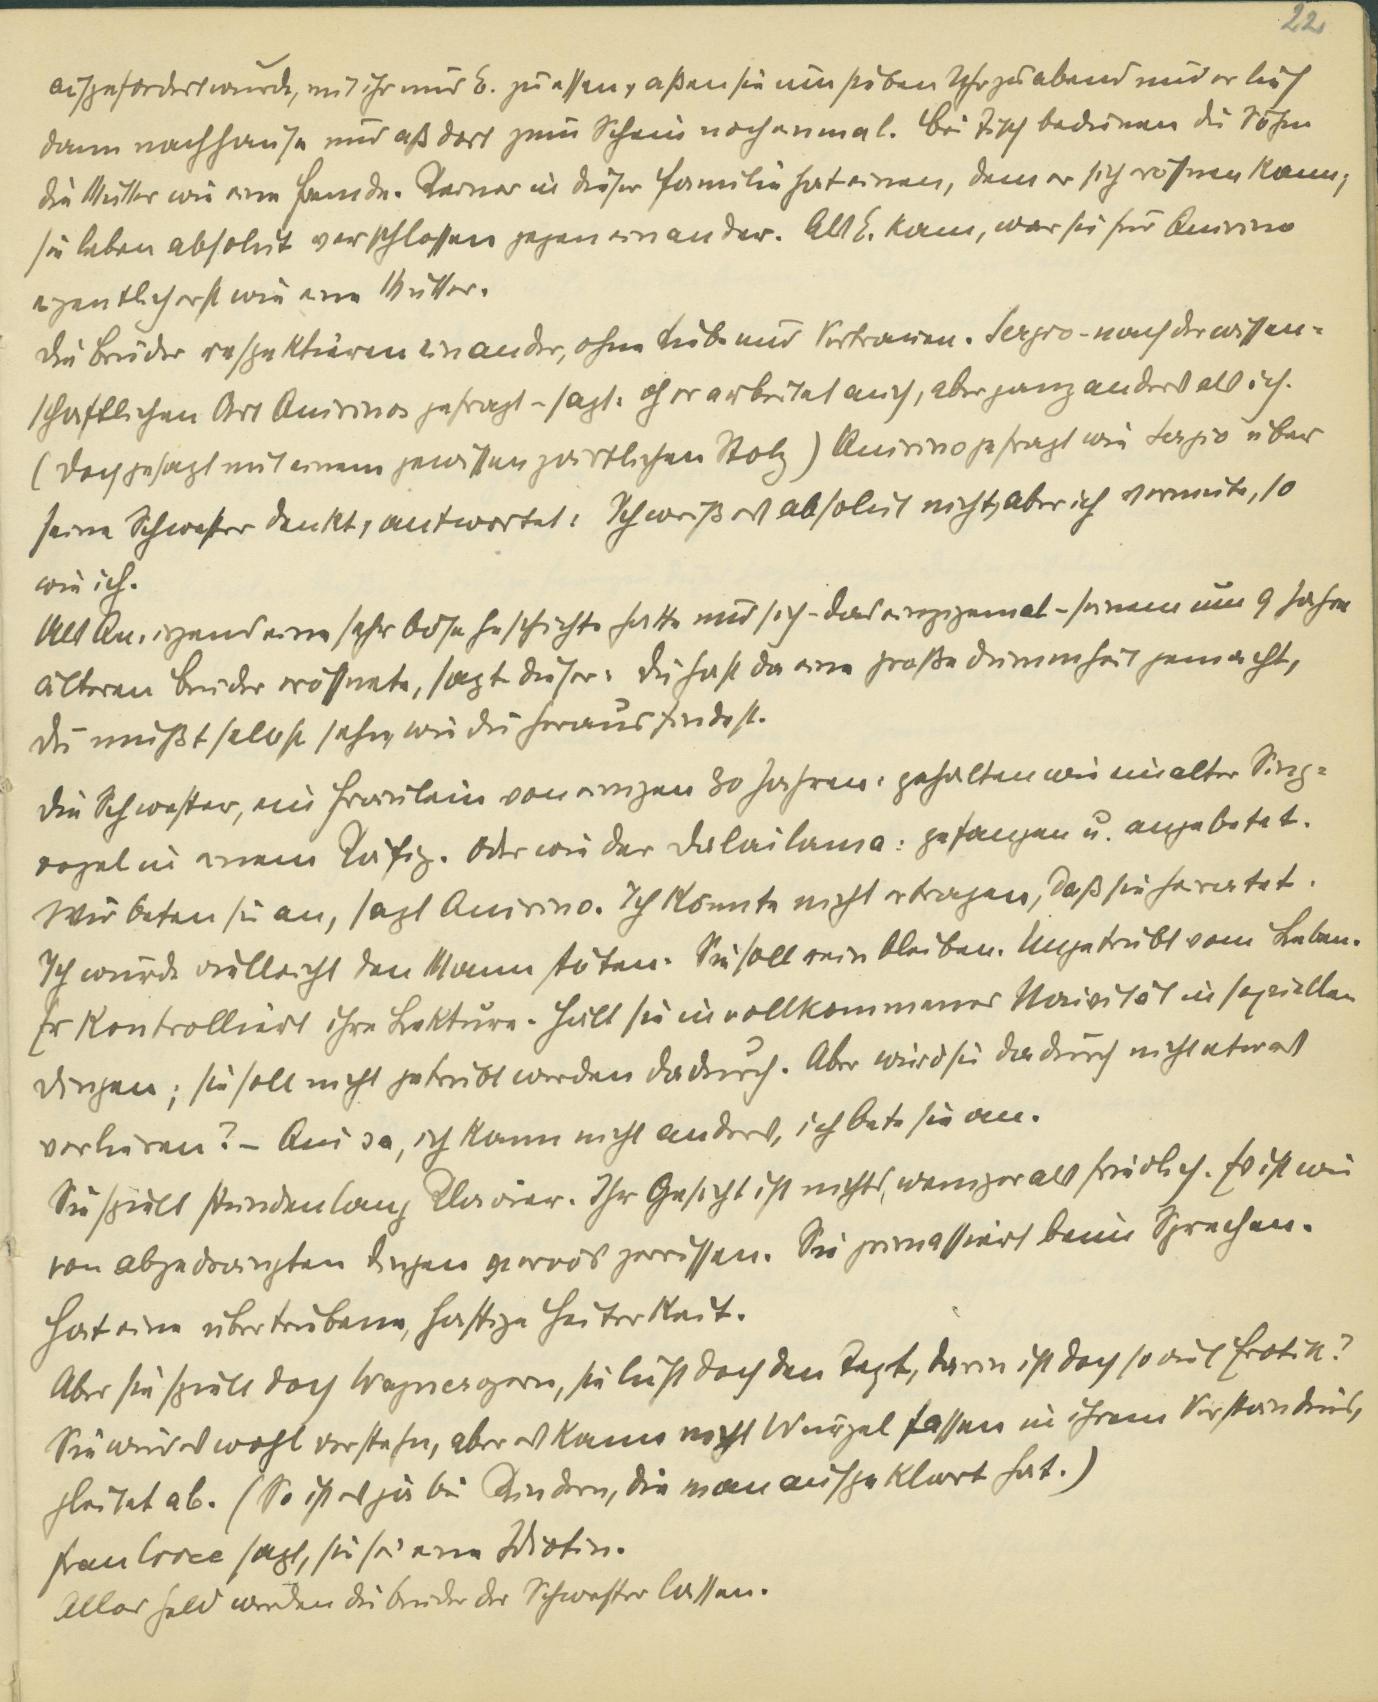 22
aufgefordert wurde, mit ihr und E. zu essen, aßen sie um sieben Uhr zu abend und er lief
dann nachhause und aß dort zum Schein noch einmal. Bei Tisch bedienen die Söhne
die Mutter wie eine Fremde. Keiner in dieser Familie hat einen, dem er sich eröffnen kann,
sie leben absolut verschlossen gegeneinander. Als E. kam, war sie für Quirino
eigentlich erst wie eine Mutter.
Die Brüder respektieren einander, ohne Liebe und Vertrauen. Sergio - nach der wissen-
schaftlichen Art Quirinos gefragt - sagt: oh er arbeitet auch, aber ganz anders als ich.
(Doch gesagt mit einem gewissen zärtlichen Stolz) Quirino gefragt wie Sergio über
seine Schwester denkt, antwortet: Ich weiß es absolut nicht, aber ich vermute, so
wie ich.
Als Qu. irgend eine sehr böse Geschichte hatte und sich - das einzigemal - seinem um 9 Jahre
älteren Bruder eröffnete, sagte dieser: Du hast da eine große Dummheit gemacht,
Du mußt selbst sehn, wie du herausfindest.
Die Schwester, ein Fräulein von einigen 30 Jahren: gehalten wie ein alter Sing-
vogel in einem Käfig. Oder wie der Dalailama: gefangen u. angebetet.
Wir beten sie an, sagt Quirino. Ich könnte nicht ertragen, daß sie heiratet.
Ich würde vielleicht den Mann töten. Sie soll rein bleiben. Ungetrübt vom Leben.
Er kontrolliert ihre Lektüre. Hält sie in vollkommener Naivität in sexuellen
Dingen; sie soll nicht getrübt werden dadurch. Aber wird sie dadurch nicht etwas
verlieren? - Qui sa, ich kann nicht anders, ich bete sie an.
Sie spielt stundenlang Klavier. Ihr Gesicht ist nichts weniger als friedlich. Es ist wie
von abgedrängten Dingen nervös zerrissen. Sie grimassiert beim Sprechen.
Hat eine übertriebene, hastige Heiterkeit.
Aber sie spielt doch Wagner gern, sie liest doch den Text, darin ist doch so viel Erotik?
Sie wird es wohl verstehn, aber es kann nicht Wurzel fassen in ihrem Verständnis,
gleitet ab. (So ist es ja bei Kindern, die man aufgeklärt hat.)
Frau Croce sagt, sie sei eine Idiotin.
Alles Geld werden die Brüder der Schwester lassen.